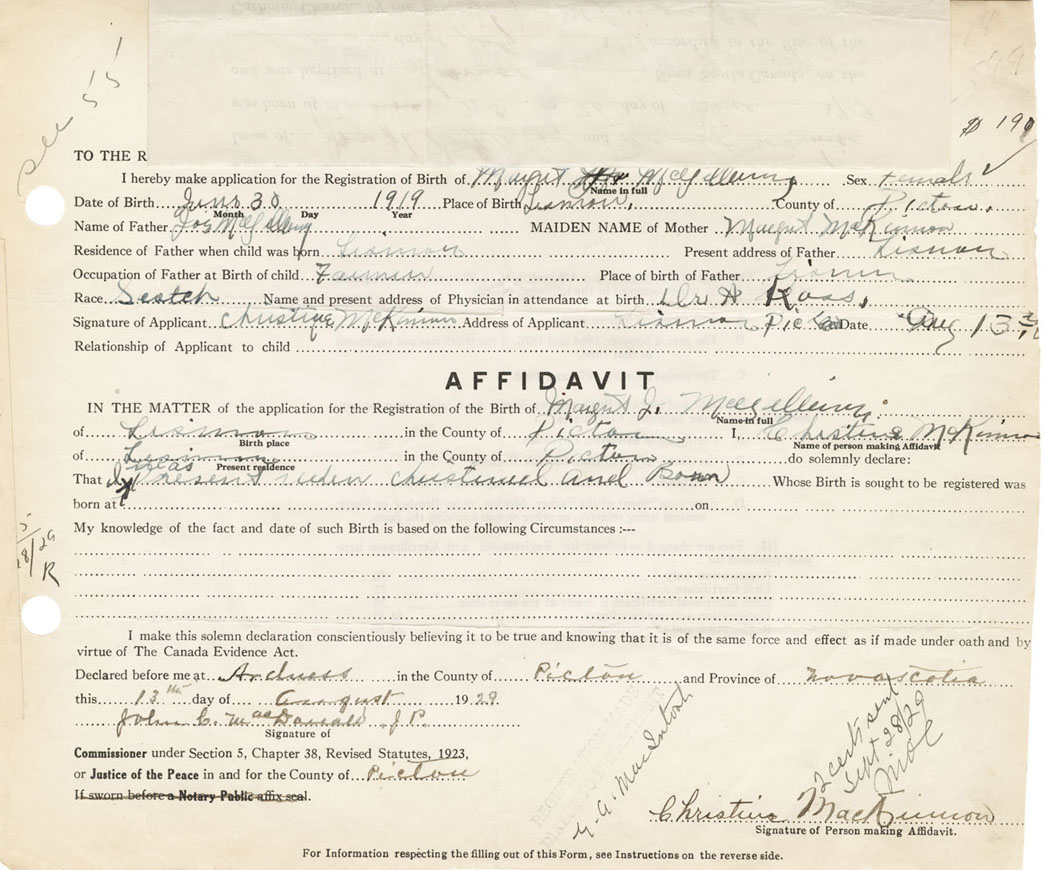 see 55
D 199
TO THE R
I hereby make application for the Registration of Birth of Margret McGelleivry Sex Female
Name in full
Date of Birth June 30 1919 Place of Birth Lismore, County of Pictou,
Month Day Year
Name of Father Jos McGellivry MAIDEN NAME of Mother Margret McKinnon
Residence of Father when child was born Lismore Present address of Father Lismore
Occupation of Father at Birth of child Farmer Place of birth of Father Lismore
Race Scotch Name and present address of Physician in attendance at birth Dr. H Ross,
Signature of Applicant Christine McKinnon Address of Applicant Lismore Pictou Date Aug 13
Relationship of Applicant to child
AFFIDAVIT
IN THE MATTER of the application for the Registration of the Birth of Margret J. McGelleivry
Name in full
of Lismore in the County of Pictou I, Christine McKinnon
Birth place Name of person making Affidavit
of Lismore in the County of Pictou do solemnly declare:
Present residence
That I was Present when christined and Born Whose Birth is sought to be registered was
born at on
My knowledge of the fact and date of such Birth is based on the following Circumstances :---
5/18/29
R
I make this solemn declaration conscientiously believing it to be true and knowing that it is of the same force and effect as if made under oath and by
virtue of The Canada Evidence Act.
Declared before me at Arduess in the County of Picton and Province of Nova Scotia
this 13th day of August 1929
John C. MacDonald J.P.
Signature of
Commissioner under Section 5, Chapter 38, Revised Statutes, 1923,
or Justice of the Peace in and for the County of Picton
If sworn before a Notary Public affix seal.
MacIntosh
2 certs sent
Sept 28/29
Christina MacKinnon
Signature of Person making Affidavit.
For Information respecting the filling out of this Form, see Instructions on the reverse side.